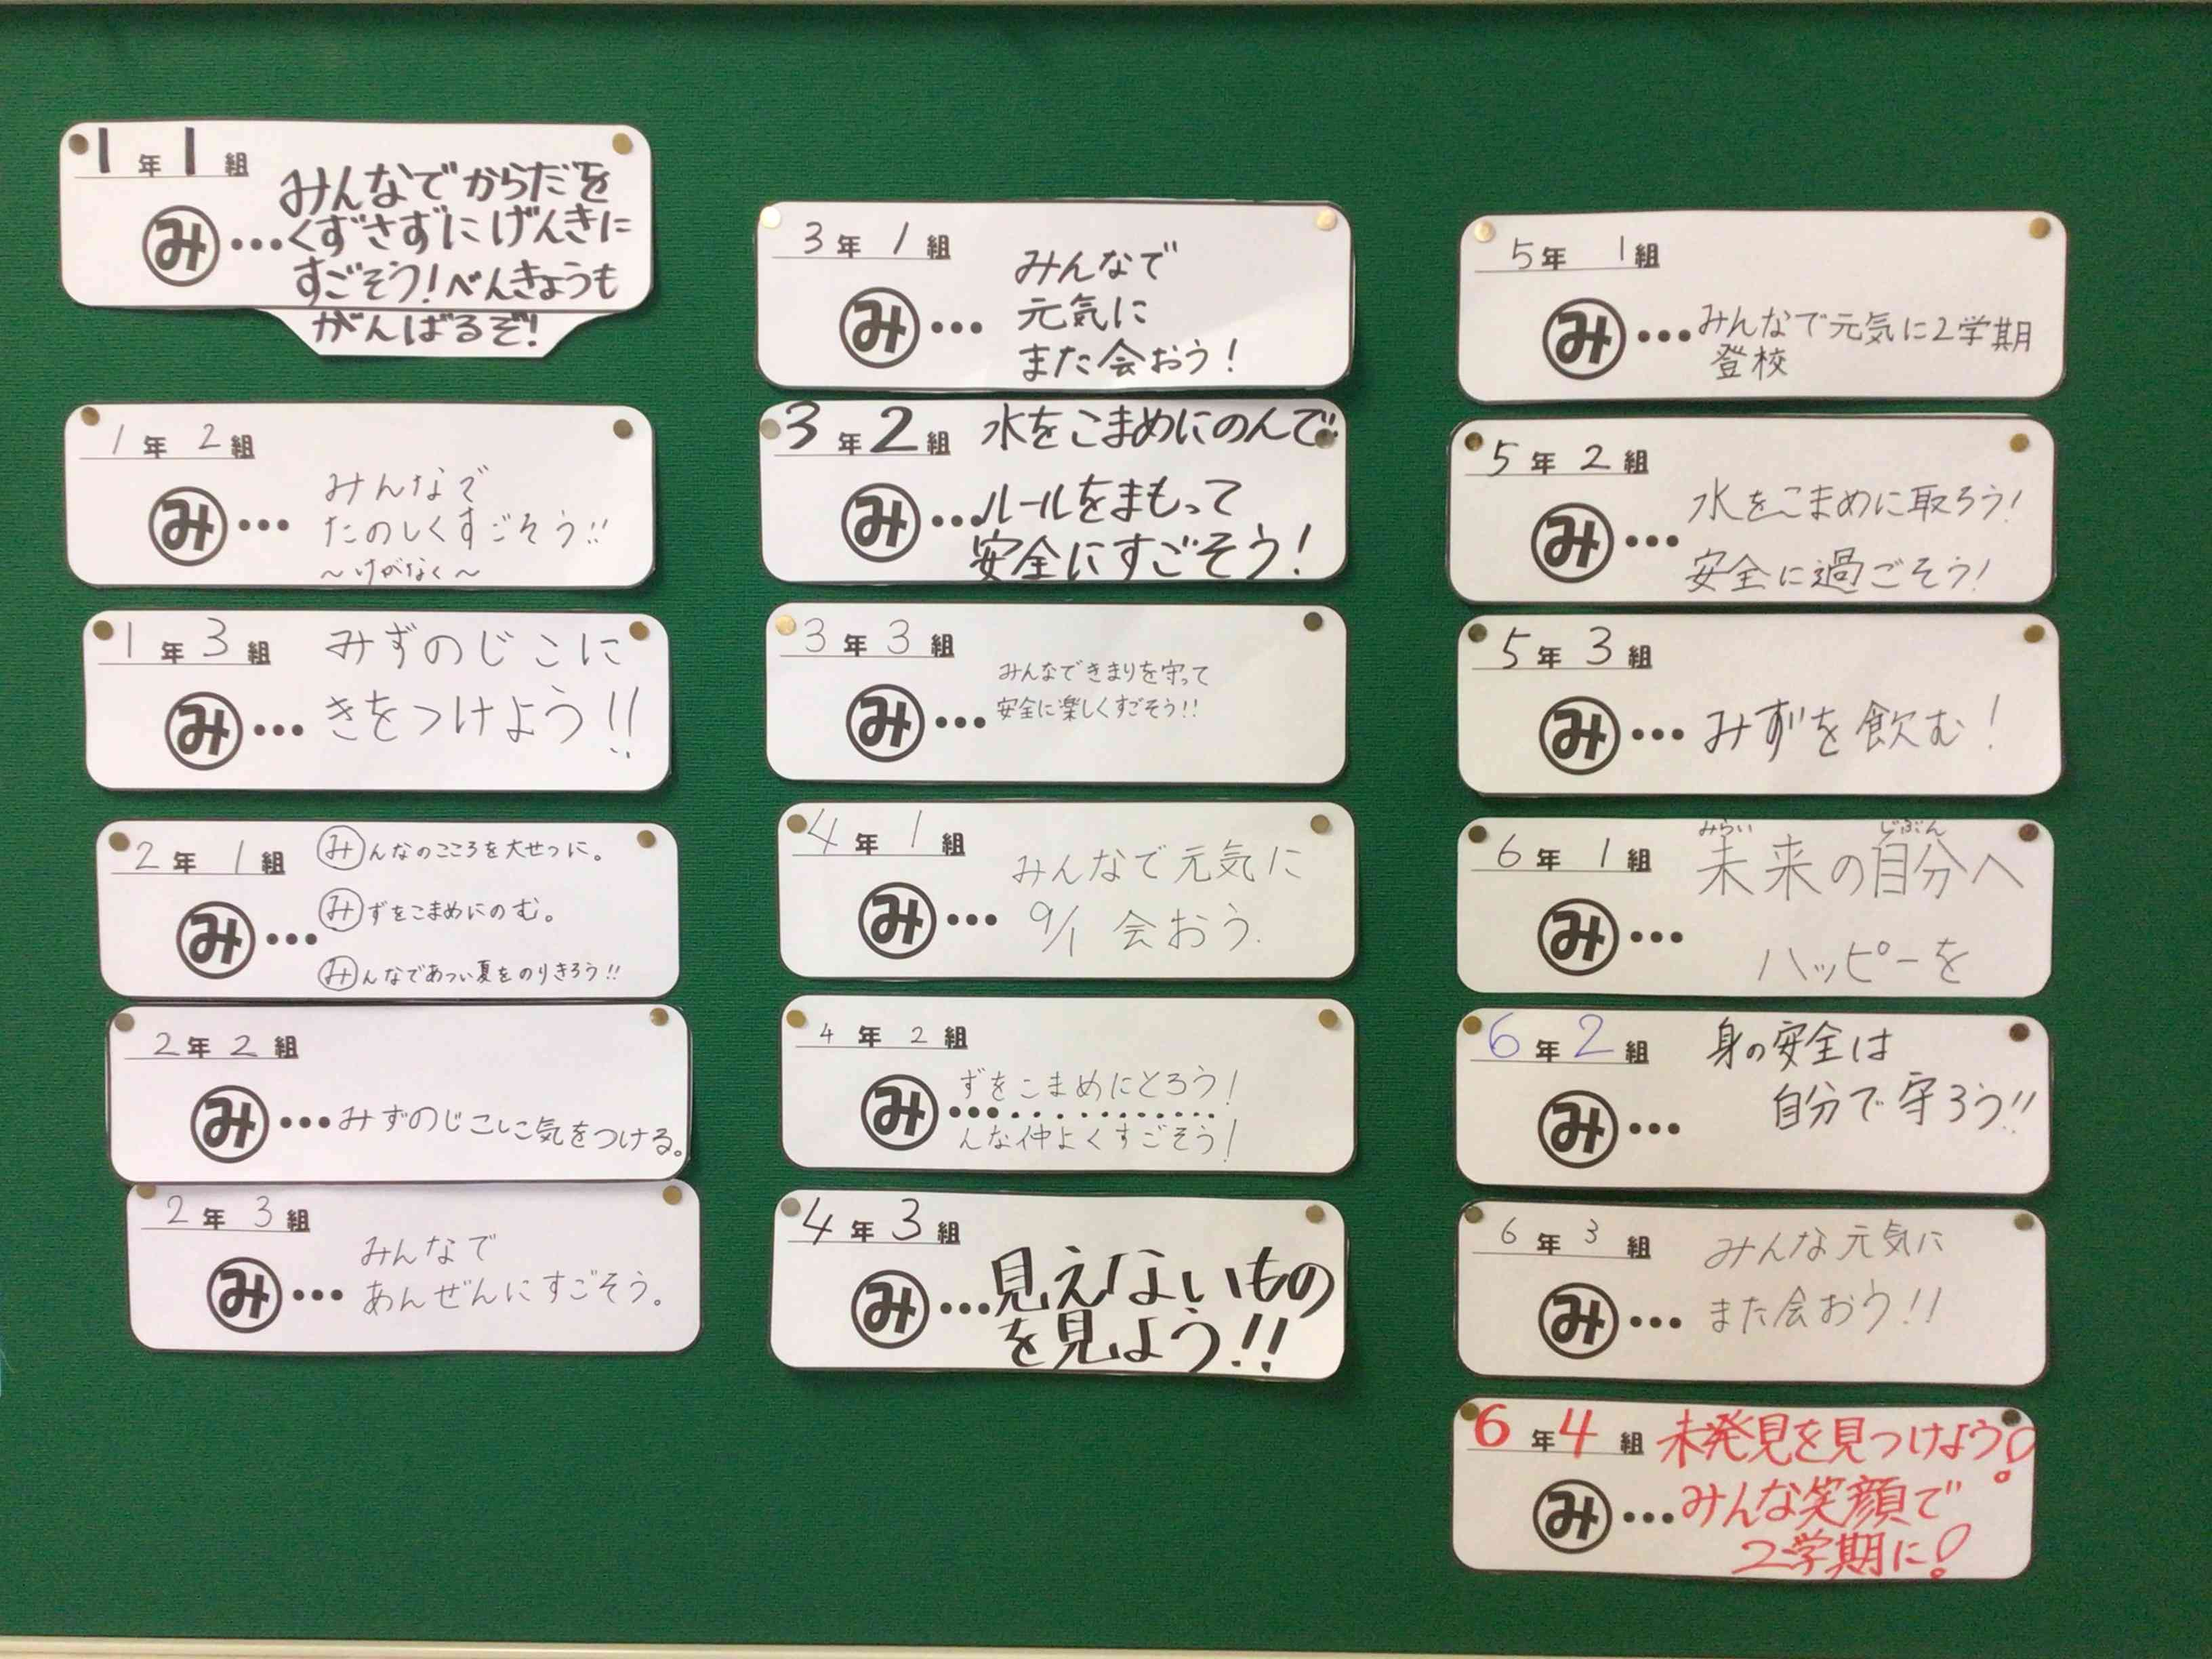 1年1組
みんなでからだを
み…くずさずにげんきに
すごそう!べんきょうも
がんばるぞ!
1年2組
みんなで
み…たのしくすごそう!!
~けがなく~
1年3組 みずのじこに
み…きをつけよう!!
2年1組 みんなのこころを大せつに。
み…みずをこまめにのむ。
みんなであつい夏をのりきろう!!
2年2組
み…みずのじこに気をつける。
2年3組
みんなで
み…あんぜんにすごそう。
3年1組
みんなで
み…元気に
また会おう!
3年2組 水をこまめにのんで
み…ルールをまもって
安全にすごそう!
3年3組
みんなできまりを守って
み…安全に楽しくすごそう!!
4年1組
みんなで元気に
み…9/1 会おう.
4年2組
ずをこまめにとろう!
み…
んな仲よくすごそう!
4年3組
み…見えないもの
を見よう!!
5年1組
み…みんなで元気に2学期
登校
5年2組
水をこまめに取ろう!
み…
安全に過ごそう!
5年3組
み…みずを飲む!
みらい じぶん
6年1組 未来の自分へ
み…ハッピーを
6年2組 身の安全は
み…自分で守ろう!!
6年3組 みんな元気に
み…また会おう!!
6年4組 未発見を見つけよう!
み…みんな笑顔で
2学期に!